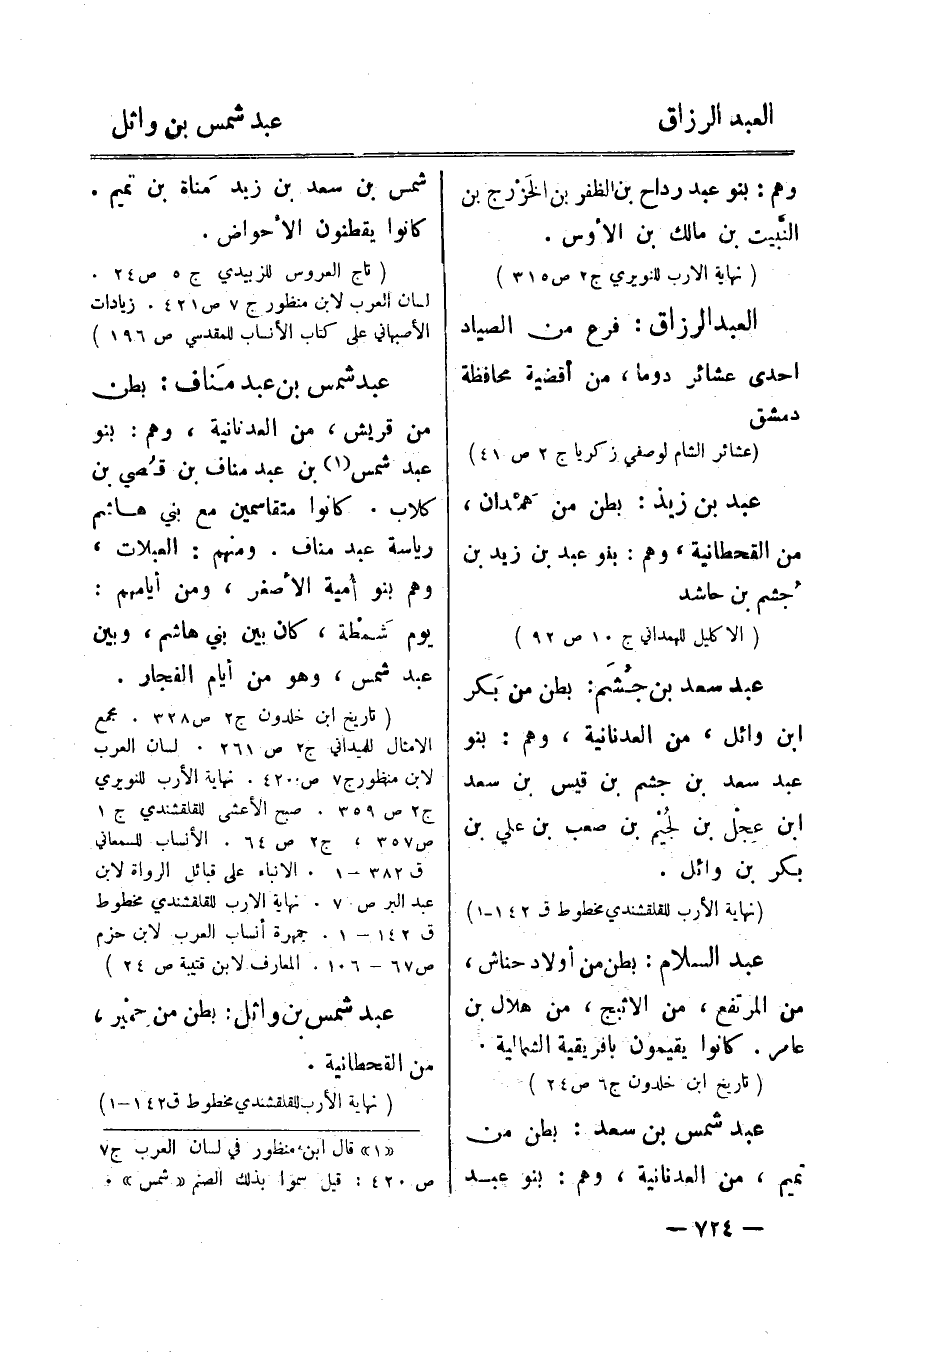 العبد الرزاق
عبد شمس بن وائل
وهم : بنو عبد رداح بن الظفر بن الخَزْرج بن
النَّبيت بن مالك بن الأوس .
( نهاية الارب للنويري ج٢ ص٣١٥ )
العبدالرزاق : فرع من الصياد
احدى عشائر دوما ، من أقضية محافظة
دمشق
(عشائر الشام لوصفي زكريا ج ٢ ص ٤١)
عبد بن زيد : بطن من هَمْدان ،
من القحطانية ، وهم : بنو عبد بن زيد بن
جُشم بن حاشد
( الاكليل للهمداني ج ١٠ ص ٩٢ )
عبد سعد بن جُشَم : بطن من بَكر
ابن وائل ، من العدنانية ، وهم : بنو
عبد سعد بن جشم بن قيس بن سعد
ابن عِجْل بن لُجَيْم بن صعب بن علي بن
بكر بن وائل .
(نهاية الأرب للقلقشندي مخطوط ق ١٤٢-١)
عبد السلام : بطن من أولاد حناش ،
من المرتفع ، من الاثبج ، من هلال بن
عامر . كانوا يقيمون بافريقية الشمالية .
( تاريخ ابن خلدون ج٦ ص٢٤ )
عبد شمس بن سعد : بطن من
تميم ، من العدنانية ، وهم : بنو عبد
شمس بن سعد بن زيد مَناة بن تميم .
كانوا يقطنون الأحواض .
( تاج العروس للزبيدي ج ٥ ص٢٤ .
لسان العرب لابن منظور ج ٧ ص٤٢١ . زيادات
الأصبهاني على كتاب الأنساب للمقدسي ص ١٩٦ )
عبدشمس بن عبد مَناف : بطن
من قريش ، من العدنانية ، وهم : بنو
عبد شمس(١) بن عبد مناف بن قُصي بن
كلاب . كانوا متقاسمين مع بني هاشم
رياسة عبد مناف . ومنهم : العبلات ،
وهم بنو أُمية الأصغر ، ومن أيامهم :
يوم شَمْطة ، كان بين بني هاشم ، وبين
عبد شمس ، وهو من أيام الفجار .
( تاريخ ابن خلدون ج٢ ص٣٢٨ . مجمع
الامثال للميداني ج٢ ص ٢٦١ . لسان العرب
لابن منظور ج٧ ص٤٢٠ . نهاية الأرب للنويري
ج٢ ص ٣٥٩ . صبح الأعشى للقلقشندي ج ١
ص٣٥٧ ، ج٢ ص ٦٤ . الأنساب للسمعاني
ق ٣٨٢ - ١ . الانباء على قبائل الرواة لابن
عبد البر ص ٧ . نهاية الارب للقلقشندي مخطوط
ق ١٤٢ - ١ . جمهرة أنساب العرب لابن حزم
ص٦٧ - ١٠٦ . المعارف لابن قتيبة ص ٢٤ )
عبد شمس بن وائل : بطن من حِمْير ،
من القحطانية .
( نهاية الأرب للقلقشندي مخطوط ق١٤٢-١)
«١» قال ابن منظور في لسان العرب ج٧
ص ٤٢٠ : قيل سموا بذلك الصنم « شمس » .
— ٧٢٤ —